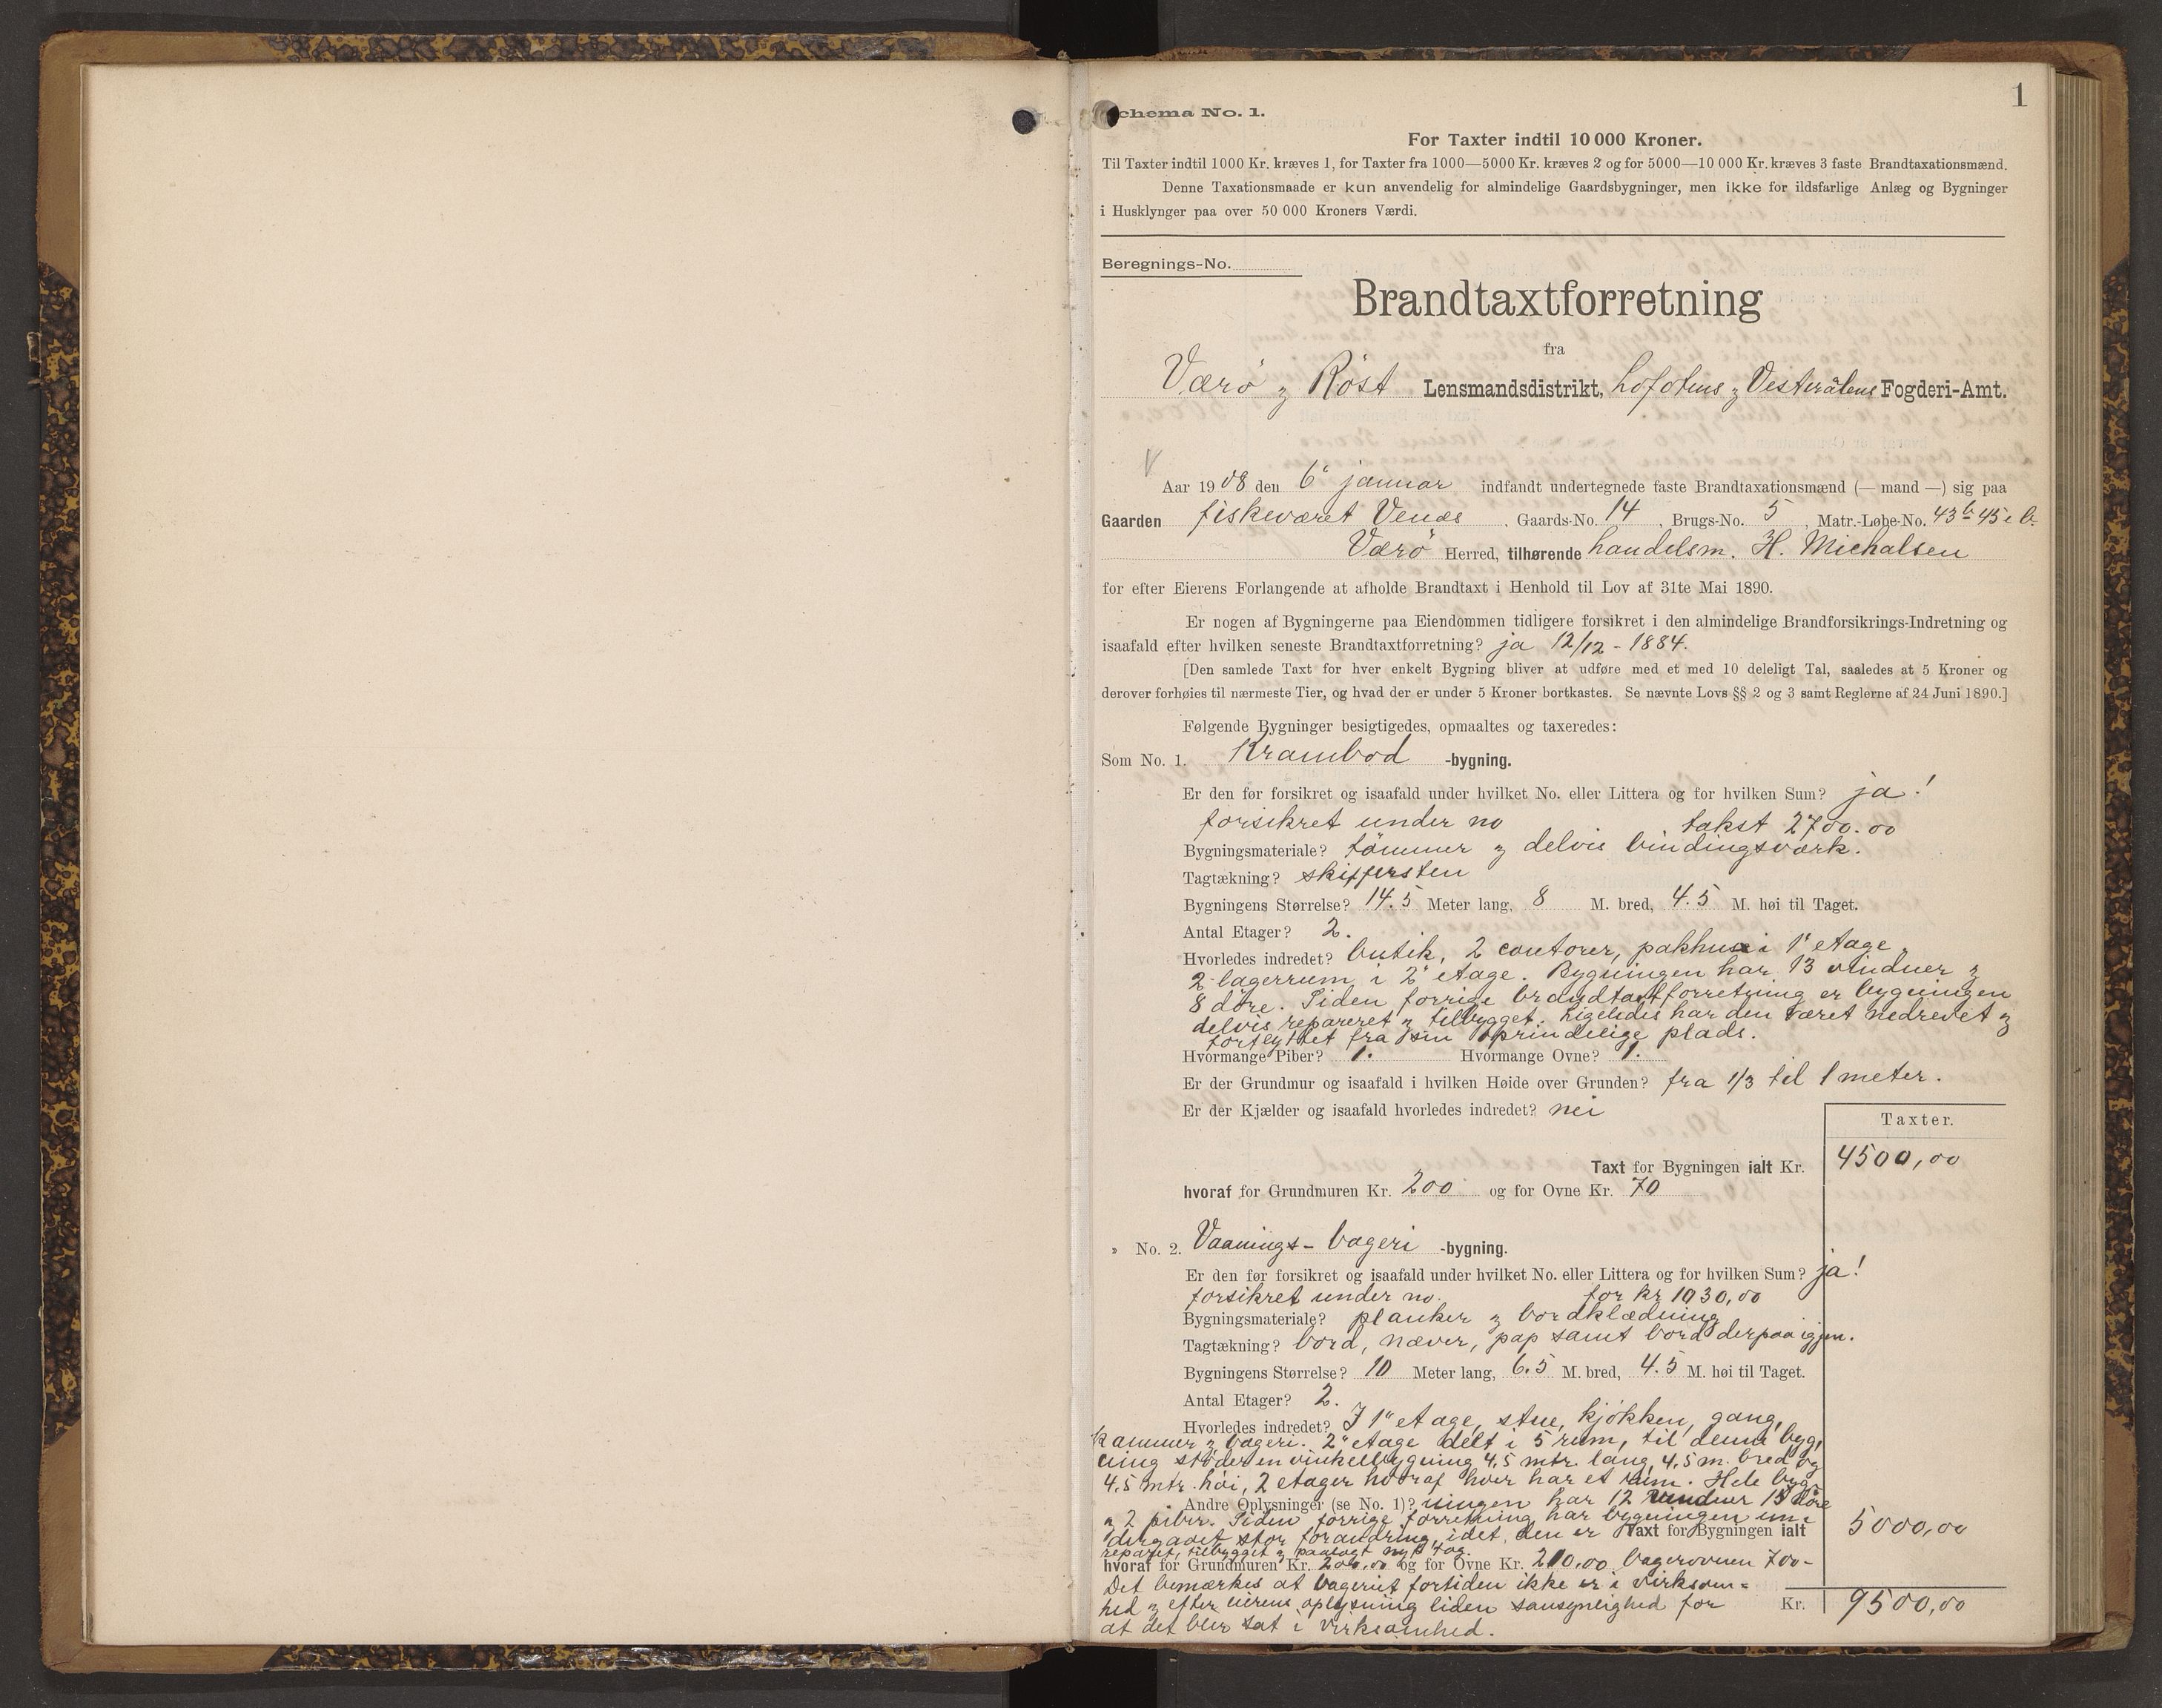 1
chema No. 1.
For Taxter indtil 10 000 Kroner.
Til Taxter indtil 1000 Kr. kræves 1, for Taxter fra 1000—5000 Kr. kræves 2 og for 5000—10 000 Kr. kræves 3 faste Brandtaxationsmænd.
Denne Taxationsmaade er kun anvendelig for almindelige Gaardsbygninger, men ikke for ildsfarlige Anlæg og Bygninger
i Husklynger paa over 50 000 Kroners Værdi.
Beregnings-No.
Brandtaxtforretning
fra
Værö & Röst Lensmandsdistrikt, Lofotens & Vesterålens Fogderi-Amt.
Aar 1908 den 6' januar indfandt undertegnede faste Brandtaxationsmænd (— mand —) sig paa
Gaarden fiskeværet Venæs, Gaards-No. 14, Brugs-No. 5, Matr.-Løbe-No. 43b 45e b.
Værö Herred, tilhørende handelsm. H. Michalsen
for efter Eierens Forlangende at afholde Brandtaxt i Henhold til Lov af 31te Mai 1890.
Er nogen af Bygningerne paa Eiendommen tidligere forsikret i den almindelige Brandforsikrings-Indretning og
isaafald efter hvilken seneste Brandtaxtforretning? ja 12/12 - 1884.
[Den samlede Taxt for hver enkelt Bygning bliver at udføre med et med 10 deleligt Tal, saaledes at 5 Kroner og
derover forhøies til nærmeste Tier, og hvad der er under 5 Kroner bortkastes. Se nævnte Lovs §§ 2 og 3 samt Reglerne af 24 Juni 1890.]
Følgende Bygninger besigtigedes, opmaaltes og taxeredes:
Som No. 1. Krambod -bygning.
Er den før forsikret og isaafald under hvilket No. eller Littera og for hvilken Sum? ja!
forsikret under no takst 2700.00
Bygningsmateriale? tömmer & delvis bindingsværk.
Tagtækning? skiffersten
Bygningens Størrelse? 14.5 Meter lang, 8 M. bred, 4.5 M. høi til Taget.
Antal Etager? 2.
Hvorledes indredet? butik, 2 contorer, pakhus i 1' etage,
2 lagerrum i 2' etage. Bygningen har 13 vinduer &
8 döre. Siden forrige brandtaxtforretning er bygningen
delvis repareret & tilbygget. Ligeledes har den været nedrevet &
forflyttet fra sin oprindelige plads.
Hvormange Piber? 1. Hvormange Ovne? 1.
Er der Grundmur og isaafald i hvilken Høide over Grunden? fra 1/3 til 1 meter.
Er der Kjælder og isaafald hvorledes indredet? nei
Taxter.
Taxt for Bygningen ialt Kr. 4500,00
hvoraf for Grundmuren Kr. 200 og for Ovne Kr. 70
» No. 2. Vaanings- bageri -bygning.
Er den før forsikret og isaafald under hvilket No. eller Littera og for hvilken Sum? ja!
forsikret under no. for kr 1030,00
Bygningsmateriale? planker & bordklædning
Tagtækning? bord, næver, pap samt bord derpaa igjen.
Bygningens Størrelse? 10 Meter lang, 6.5 M. bred, 4.5 M. høi til Taget.
Antal Etager? 2.
Hvorledes indredet? I 1' etage, stue, kjøkken, gang,
kammer & bageri. 2' etage delt i 5 rum, til denne byg,
ning støder en vinkelbygning 4,5 mtr. lang, 4,5 m. bred og
4,5 mtr. høi, 2 etager hvoraf hver har et rum. Hele byg-
Andre Oplysninger (se No. 1)? ningen har 12 vinduer 15 döre
& 2 piber. Siden forrige forretning har bygningen un-
dergaaet stor forandring, idet den er Taxt for Bygningen ialt 5000,00
reparet, tilbygget & paalagt nyt tag.
hvoraf for Grundmuren Kr. 200.00 og for Ovne Kr. 210.00 bagerovnen 700-
Det bemærkes at bageriet fortiden ikke er i virksom-
hed & efter eierens oplysning liden sansynlighed for Kr. 9500,00
at det blir sat i virksomhed.